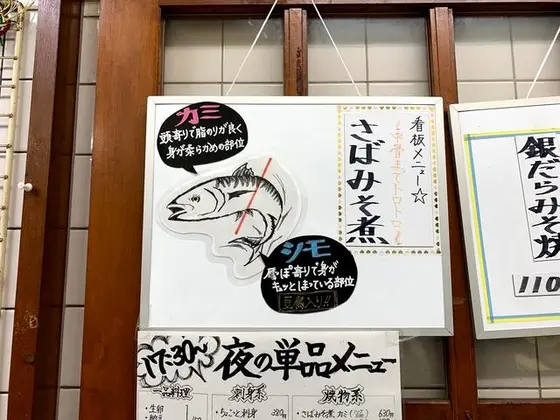 カミ
頭寄りで脂のりが良く
身が柔らかめの部位
看板メニュー☆
中骨までトロトロ
さばみそ煮
シモ
尾っぽ寄りで身が
キュッとしまっている部位
豆腐入り!!
銀だらみそ焼
110
17:30〜
夜の単品メニュー
一品料理
・生卵
刺身系
・ちょこと刺身
焼物系
・さばみそ煮 カミ
630円